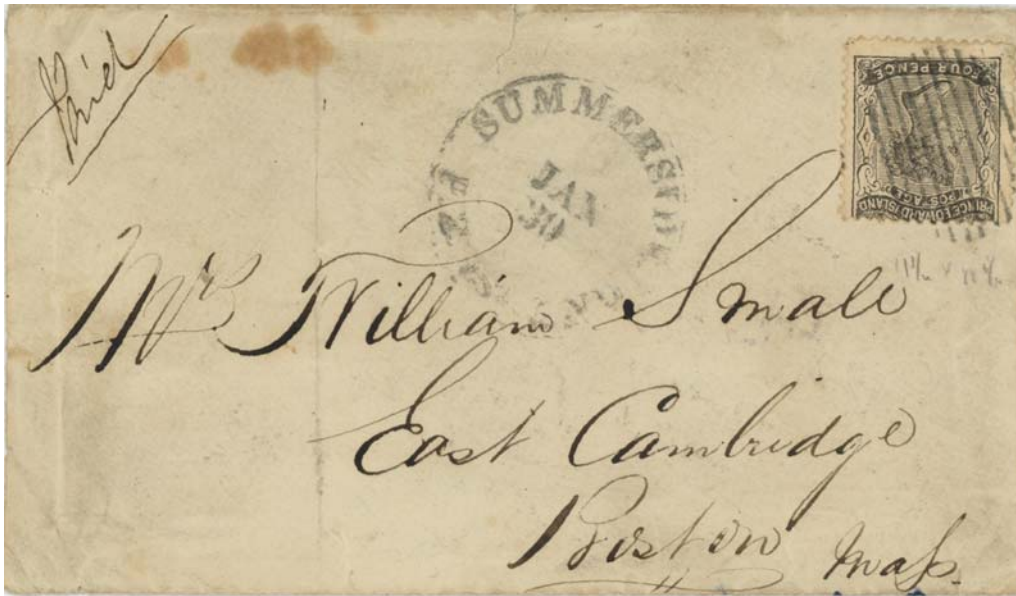 Paid
SUMMERSIDE
JAN
30
FOUR PENCE
PRINCE EDWARD ISLAND
POSTAGE
Mrs William Small
East Cambridge
Boston Mass.